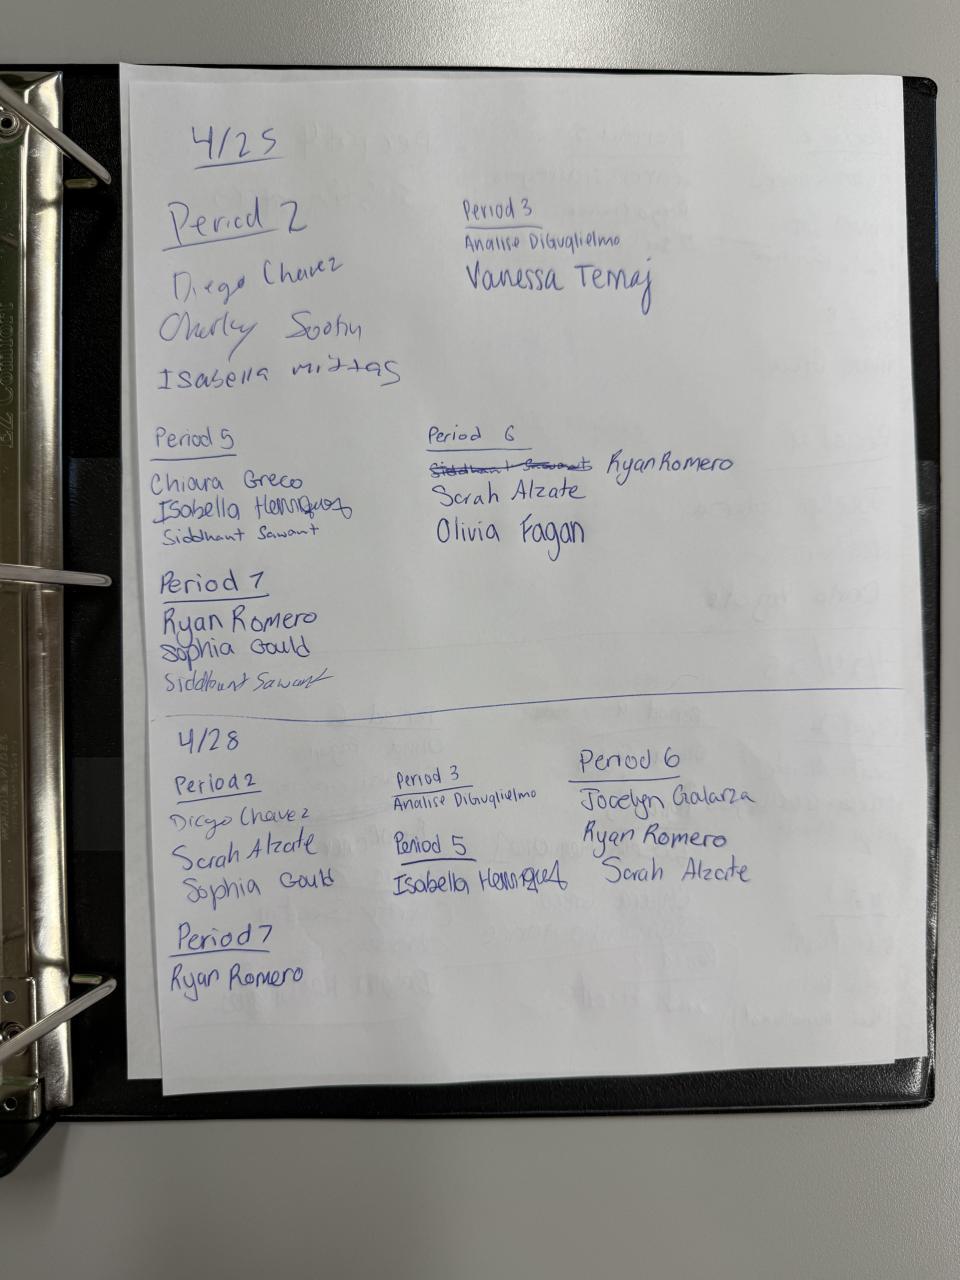 4/25
Period 2
Diego Chavez
Charley
Isabella mittas
Period 3
Analise DiGuglielmo
Vanessa Temaj
Period 5
Chiara Greco
Isabella Henriquez
Siddhant Sawant
Period 6
Siddhant Sawant Ryan Romero
Sarah Alzate
Olivia Fagan
Period 7
Ryan Romero
Sophia Gould
Siddhant Sawant
4/28
Period 2
Diego Chavez
Sarah Alzate
Sophia Gould
Period 3
Analise DiGuglielmo
Period 5
Isabella Henriquez
Period 6
Jocelyn Galarza
Ryan Romero
Sarah Alzate
Period 7
Ryan Romero